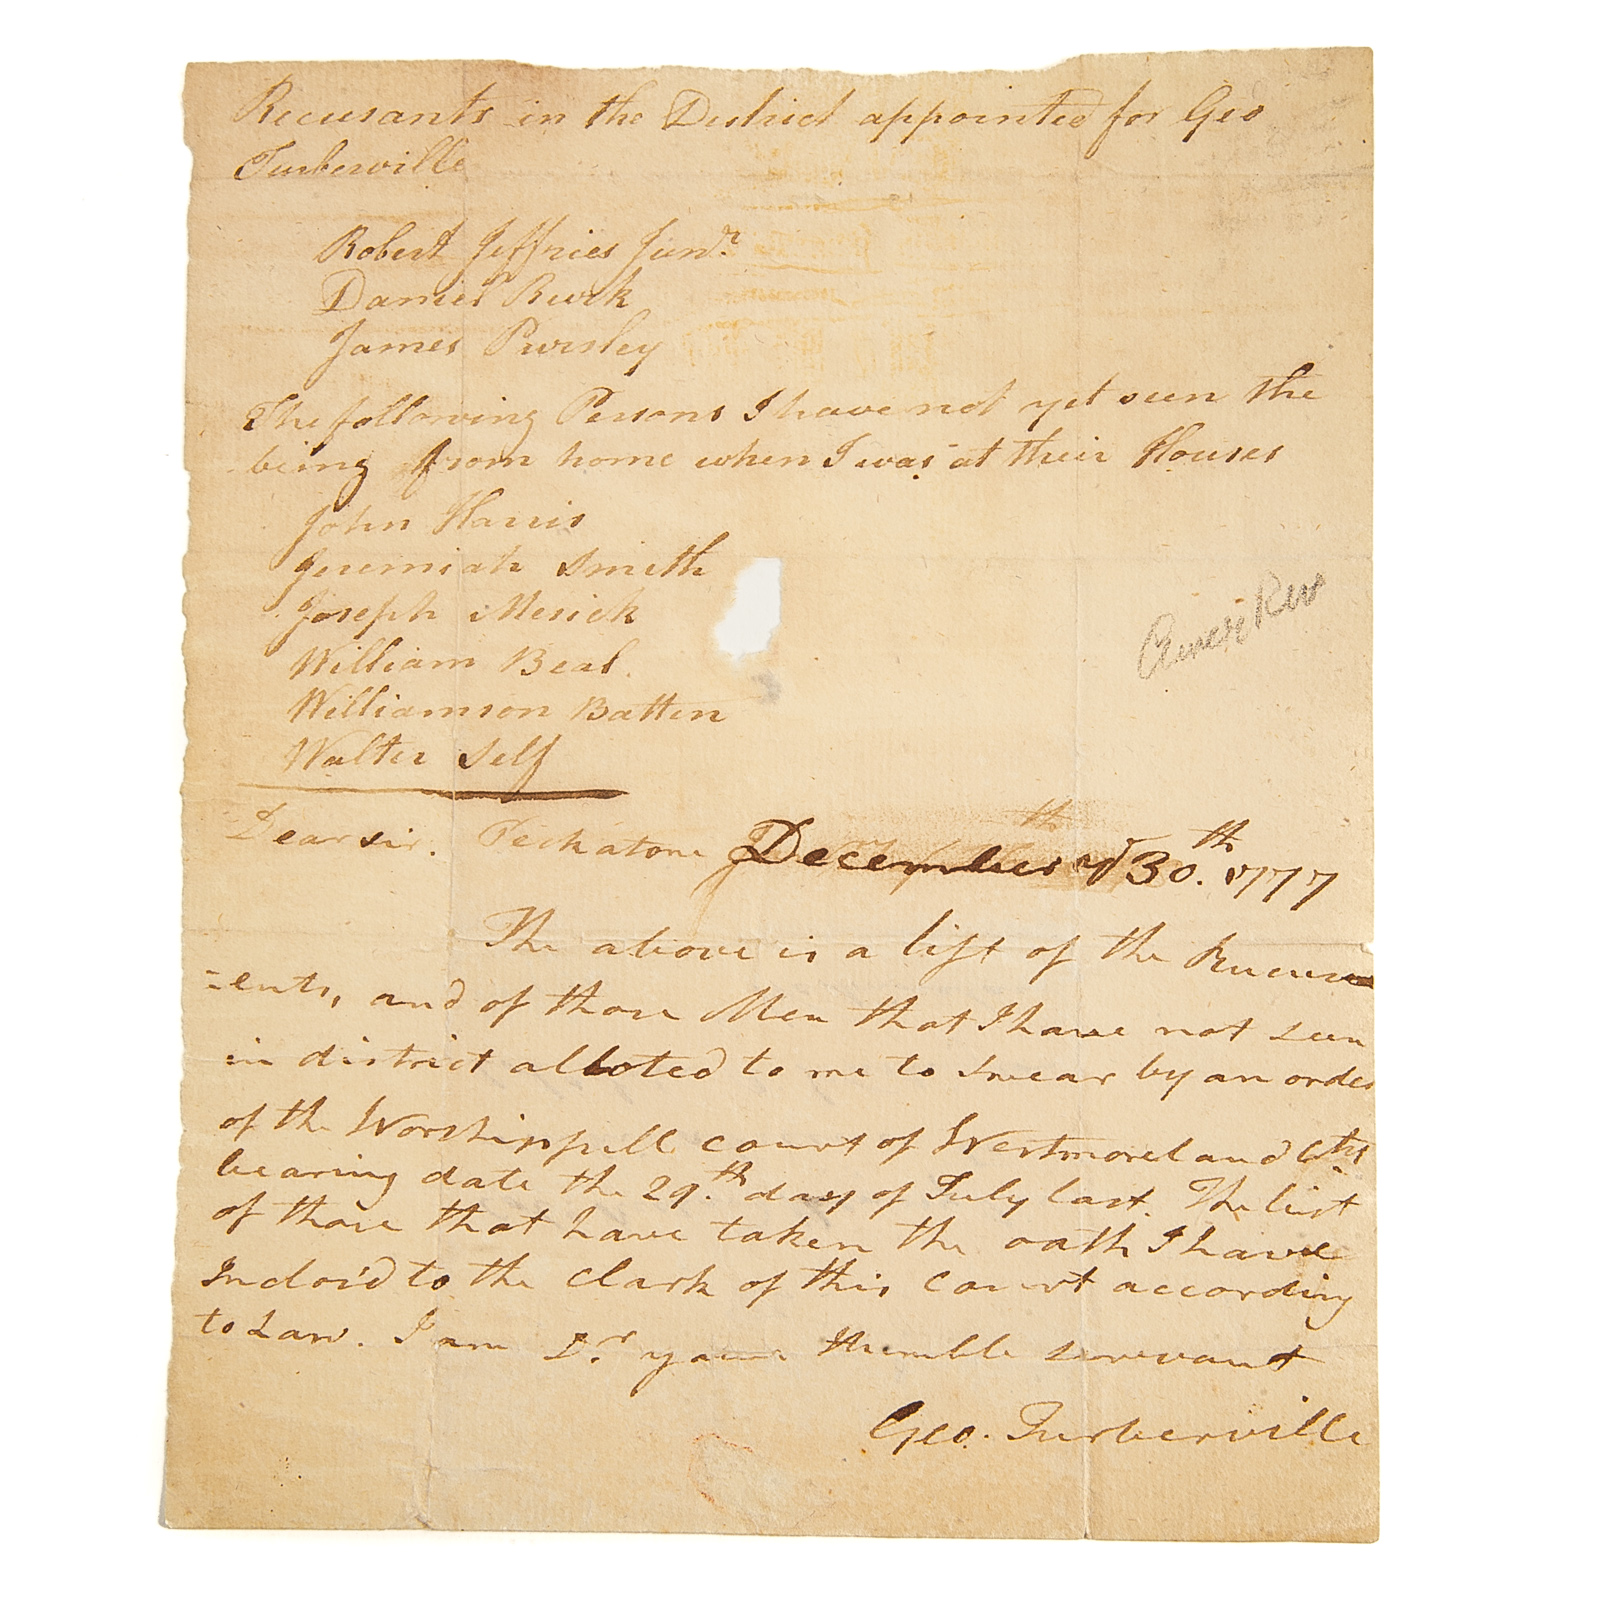 Recusants in the District appointed for Geo
Turberville
Robert Jeffries Junr.
Daniel
James Pursley
The following Persons I have not yet seen the
being from home when I was at their Houses
John Harris
Jeremiah Smith
Joseph Mesick
William Beal.
Williamson Batten
Walter Self
Dear sir. Peckatone December 30.th 1777
The above is a list of the Recus
=ents, and of those Men that I have not seen
in district alloted to me to swear by an order
of the Worshippull court of Westmoreland
bearing date the 29.th day of July last. The list
of those that have taken the oath I have
Inclos'd to the Clark of this Court according
to Law. I am Dr. your Humble servant
Geo. Turberville
Amer Rev